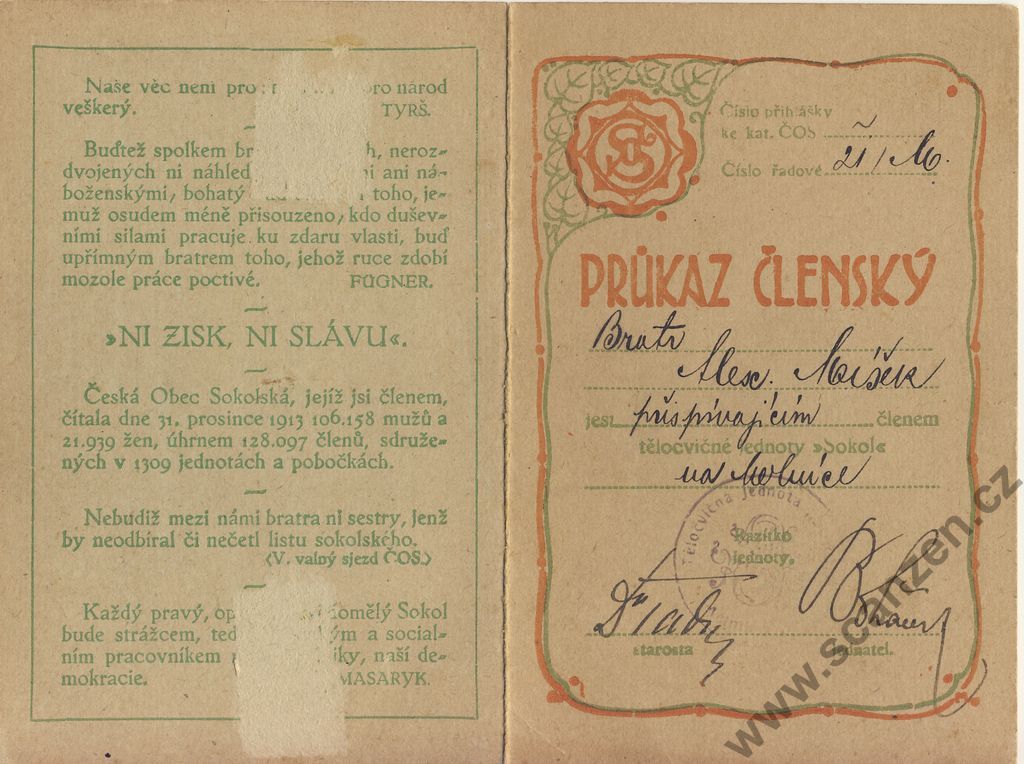 Naše věc není pro pro národ
veškerý. TYRŠ.
Buďtež spolkem neroz-
dvojených ni náhled ani ná-
boženskými, bohatý toho, je-
muž osudem méně přisouzeno, kdo dušev-
ními silami pracuje ku zdaru vlasti, buď
upřímným bratrem toho, jehož ruce zdobí
mozole práce poctivé. FÜGNER.
»NI ZISK, NI SLÁVU«.
Česká Obec Sokolská, jejíž jsi členem,
čítala dne 31. prosince 1913 106.158 mužů a
21.939 žen, úhrnem 128.097 členů, sdruže-
ných v 1309 jednotách a pobočkách.
Nebudiž mezi námi bratra ni sestry, jenž
by neodbíral či nečetl listu sokolského.
(V. valný sjezd ČOS.)
Každý pravý, Sokol
bude strážcem, a social-
ním pracovníkem naší de-
mokracie. MASARYK.
Číslo přihlášky
ke kat. ČOS
Číslo řadové 21/M.
PRŮKAZ ČLENSKÝ
Bratr
Alex. Mišek
jest přispívajícím členem
tělocvičné jednoty »Sokol«
na
Tělocvičná jednota
Razítko
jednoty.
starosta jednatel.
www.schutzen.cz